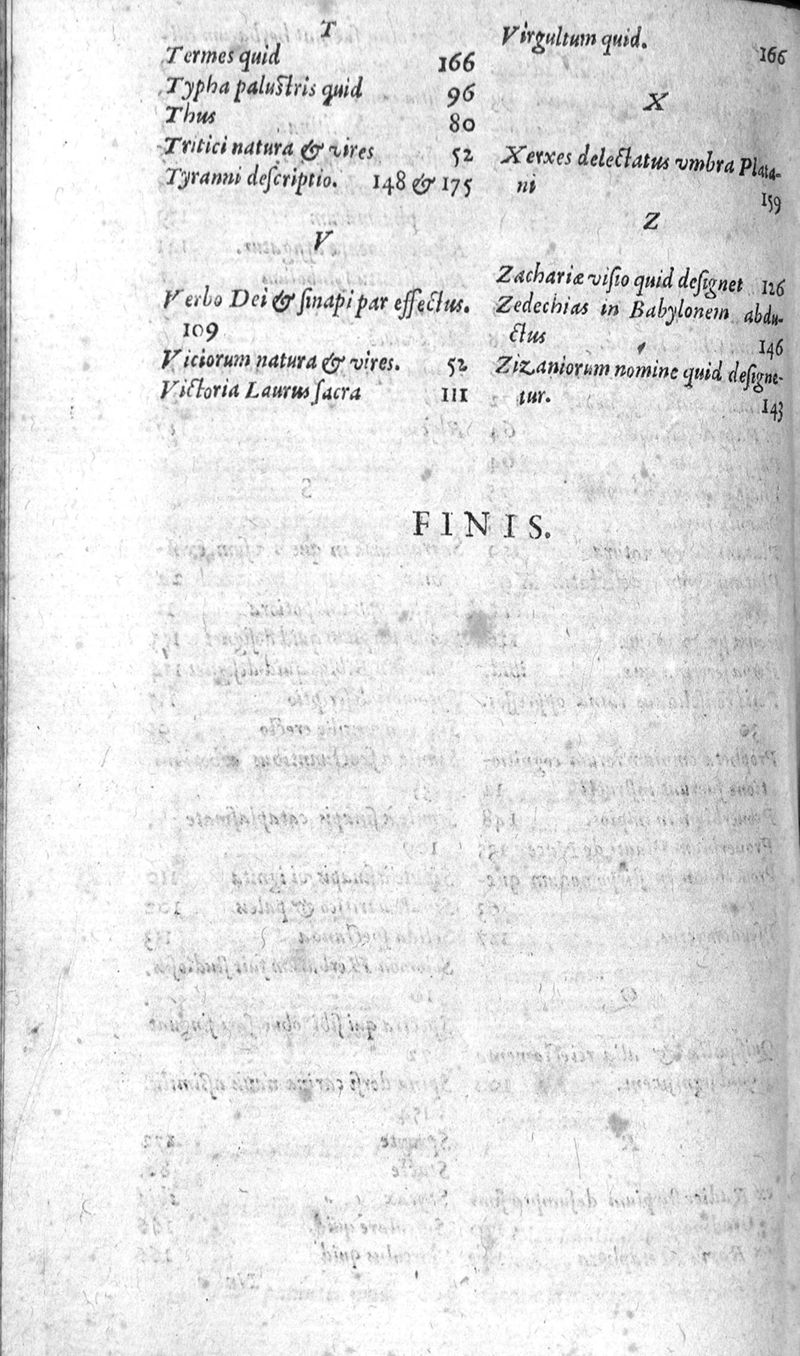 T
Termes quid 166
Typha palustris quid 96
Thus 80
Tritici natura & vires 52
Tyranni deſcriptio. 148 & 175
V
Verbo Dei & ſinapi par effectus.
109
Viciorum natura & vires. 52
Victoria Laurus ſacra 111
Virgultum quid. 166
X
Xerxes delectatus vmbra Plata-
ni 159
Z
Zachariæ viſio quid deſignet 126
Zedechias in Babylonem abdu-
ctus 146
Zizaniorum nomine quid deſigne-
tur. 143
FINIS.